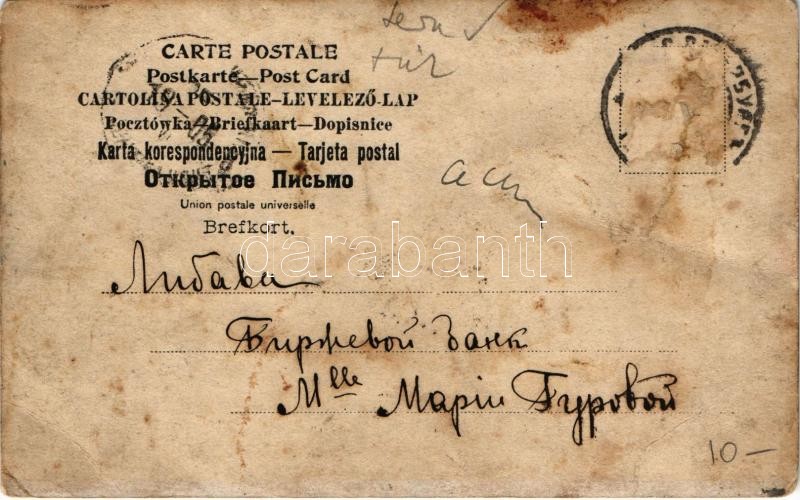 CARTE POSTALE
Postkarte—Post Card
CARTOLINA POSTALE—LEVELEZŐ-LAP
Pocztówka—Briefkaart—Dopisnice
Karta korespondencyjna — Tarjeta postal
Открытое Письмо
Union postale universelle
Brefkort.
darabanth
Либава
Биржевой Банк
Mlle Маріи Гуровой
10—